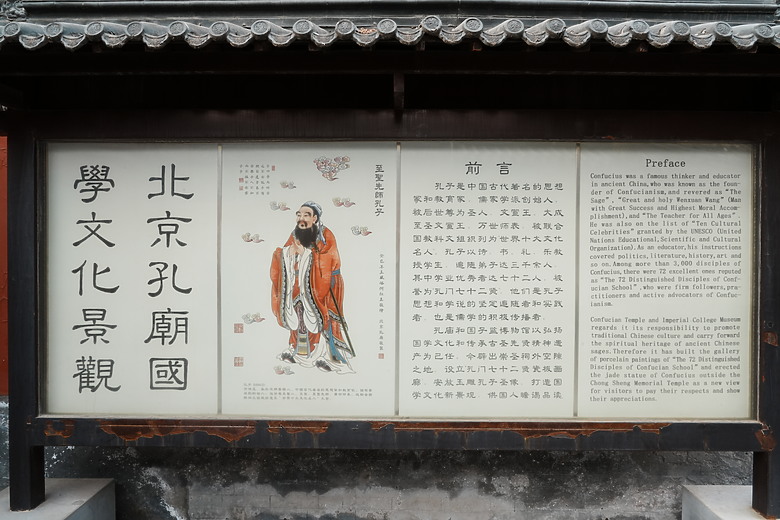 北京孔廟國
學文化景觀
至聖先師孔子
前言
孔子是中国古代著名的思想
家和教育家，儒家学派创始人，
被后世尊为圣人、文宣王、大成
至圣文宣王、万世师表，被联合
国教科文组织列为世界十大文化
名人。孔子以诗、书、礼、乐教
授学生，追随弟子达三千余人，
其中学业优秀者七十二人，被
誉为孔门七十二贤，他们是孔子
思想和学说的坚定追随者和实践
者，也是儒学的积极传播者。
孔庙和国子监博物馆以弘扬
国学文化、传承古圣先贤精神遗
产为己任，今辟出崇圣祠外空隙
之地，设立孔门七十二贤瓷板画
廊，安放玉雕孔子圣像，打造国
学文化新景观，供国人瞻仰品读
Preface
Confucius was a famous thinker and educator
in ancient China, who was known as the foun-
der of Confucianism, and revered as "The
Sage", "Great and holy Wenxuan Wang" (Man
with Great Success and Highest Moral Accom-
plishment), and "The Teacher for All Ages".
He was also on the list of "Ten Cultural
Celebrities" granted by the UNESCO (United
Nations Educational, Scientific and Cultural
Organization). As an educator, his instructions
covered politics, literature, history, art and
so on. Among more than 3,000 disciples of
Confucius, there were 72 excellent ones reputed
as "The 72 Distinguished Disciples of Conf-
ucian School", who were firm followers, pra-
ctitioners and active advocators of Confuc-
ianism.
Confucius Temple and Imperial College Museum
regards it its responsibility to promote
traditional Chinese culture and carry forward
the spiritual heritage of ancient Chinese
sages. Therefore it has built the gallery
of porcelain paintings of "The 72 Distinguished
Disciples of Confucian School" and erected
the jade statue of Confucius outside the
Chong Sheng Memorial Temple as a new view
for visitors to pay their respects and show
their appreciations.